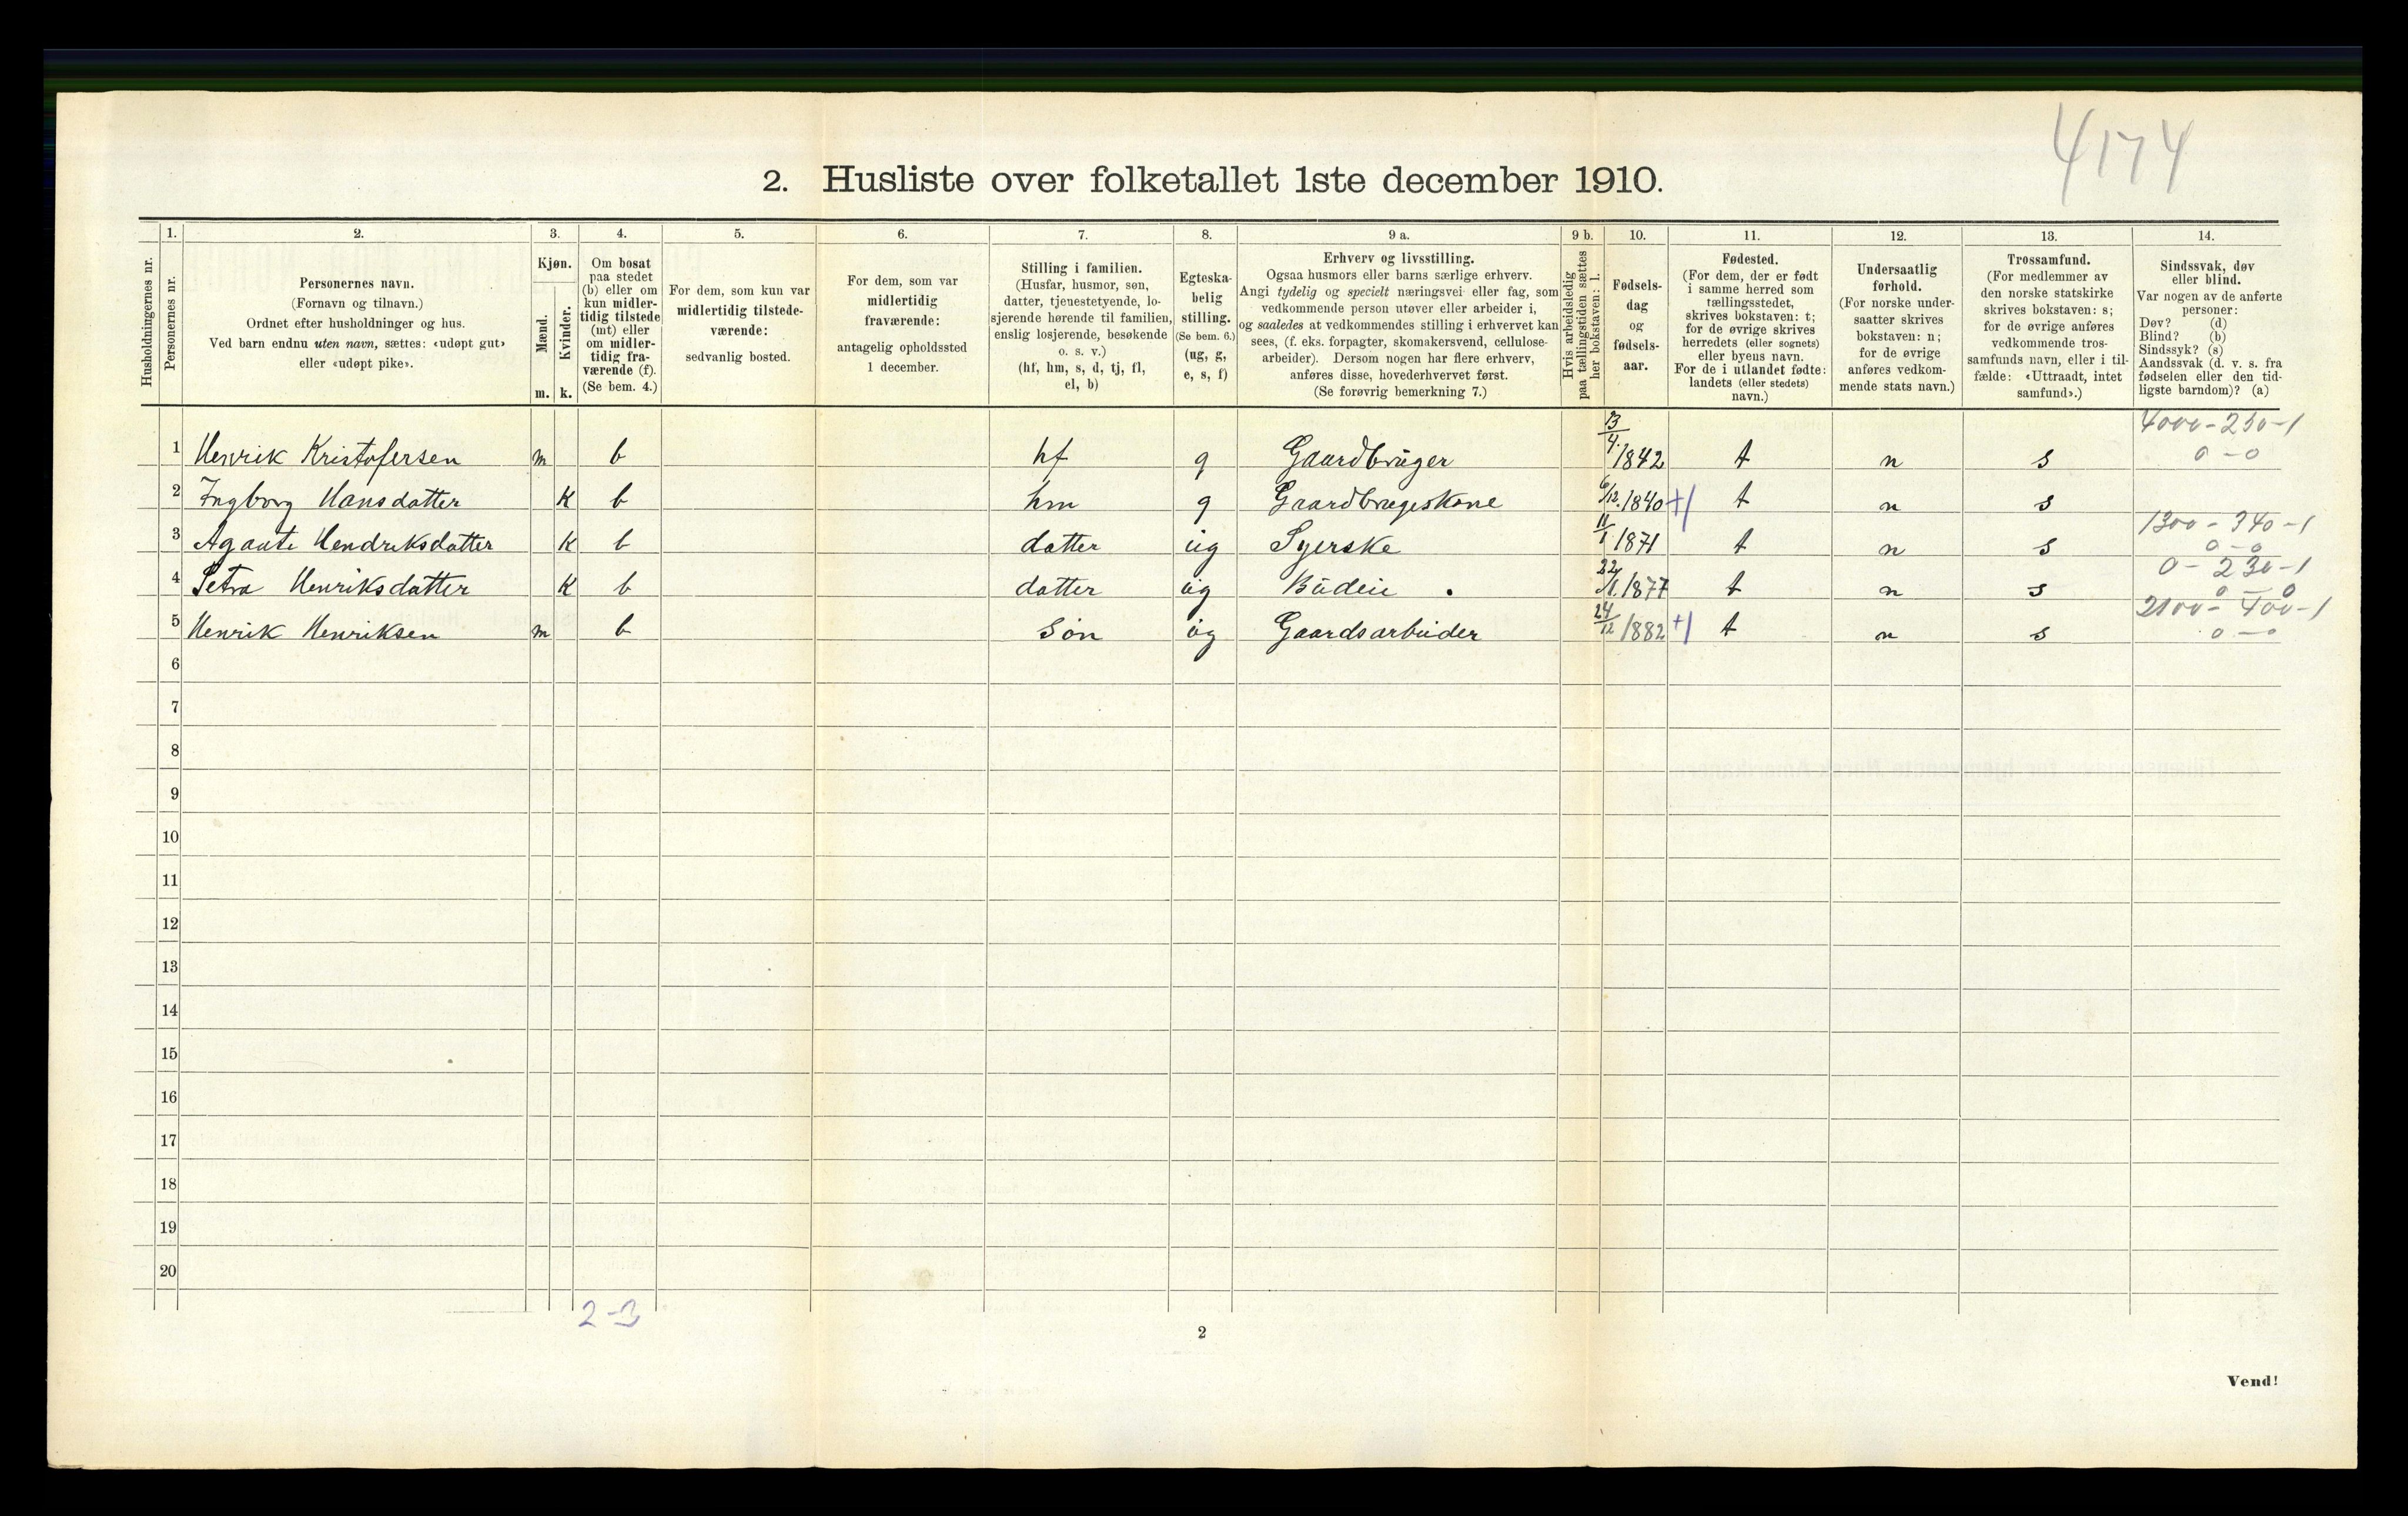 4174
2. Husliste over folketallet 1ste december 1910.
1. 2. 3. 4. 5. 6. 7. 8. 9 a. 9 b. 10. 11. 12. 13. 14.
Husholdningernes nr.
Personernes nr.
Personernes navn.
(Fornavn og tilnavn.)
Ordnet efter husholdninger og hus.
Ved barn endnu uten navn, sættes: «udøpt gut»
eller «udøpt pike».
Kjøn.
Mænd.
Kvinder.
m. k.
Om bosat
paa stedet
(b) eller om
kun midler-
tidig tilstede
(mt) eller
om midler-
tidig fra-
værende (f).
(Se bem. 4.)
For dem, som kun var
midlertidig tilstede-
værende:
sedvanlig bosted.
For dem, som var
midlertidig
fraværende:
antagelig opholdssted
1 december.
Stilling i familien.
(Husfar, husmor, søn,
datter, tjenestetyende, lo-
sjerende hørende til familien,
enslig losjerende, besøkende
o. s. v.)
(hf, hm, s, d, tj, fl,
el, b)
Egteska-
belig
stilling.
(Se bem. 6.)
(ug, g,
e, s, f)
Erhverv og livsstilling.
Ogsaa husmors eller barns særlige erhverv.
Angi tydelig og specielt næringsvei eller fag, som
vedkommende person utøver eller arbeider i,
og saaledes at vedkommendes stilling i erhvervet kan
sees, (f. eks. forpagter, skomakersvend, cellulose-
arbeider). Dersom nogen har flere erhverv,
anføres disse, hovederhvervet først.
(Se forøvrig bemerkning 7.)
Hvis arbeidsledig
paa tællingstiden sættes
her bokstaven: l.
Fødsels-
dag
og
fødsels-
aar.
Fødested.
(For dem, der er født
i samme herred som
tællingsstedet,
skrives bokstaven: t;
for de øvrige skrives
herredets (eller sognets)
eller byens navn.
For de i utlandet fødte:
landets (eller stedets)
navn.)
Undersaatlig
forhold.
(For norske under-
saatter skrives
bokstaven: n;
for de øvrige
anføres vedkom-
mende stats navn.)
Trossamfund.
(For medlemmer av
den norske statskirke
skrives bokstaven: s;
for de øvrige anføres
vedkommende tros-
samfunds navn, eller i til-
fælde: «Uttraadt, intet
samfund».)
Sindssvak, døv
eller blind.
Var nogen av de anførte
personer:
Døv? (d)
Blind? (b)
Sindssyk? (s)
Aandssvak (d. v. s. fra
fødselen eller den tid-
ligste barndom)? (a)
4000-250-1
1 Henrik Kristofersen m b hf g Gaardbruger 13/4. 1842 t n s 0-0
2 Ingborg Hansdatter K b hm g Gaardbrugeskone 6/12. 1840 +1 t n s
1300-340-1
3 Agaate Hendriksdatter K b datter ug Syerske 11/1 1871 t n s 0-0
0-230-1
4 Petra Henriksdatter K b datter ug Budeie 22/1. 1877 t n s 0-0
2100-400-1
5 Henrik Henriksen m b Søn ug Gaardsarbeider 24/12 1882 +1 t n s 0-0
6
7
8
9
10
11
12
13
14
15
16
17
18
19
20
2-3
2
Vend!